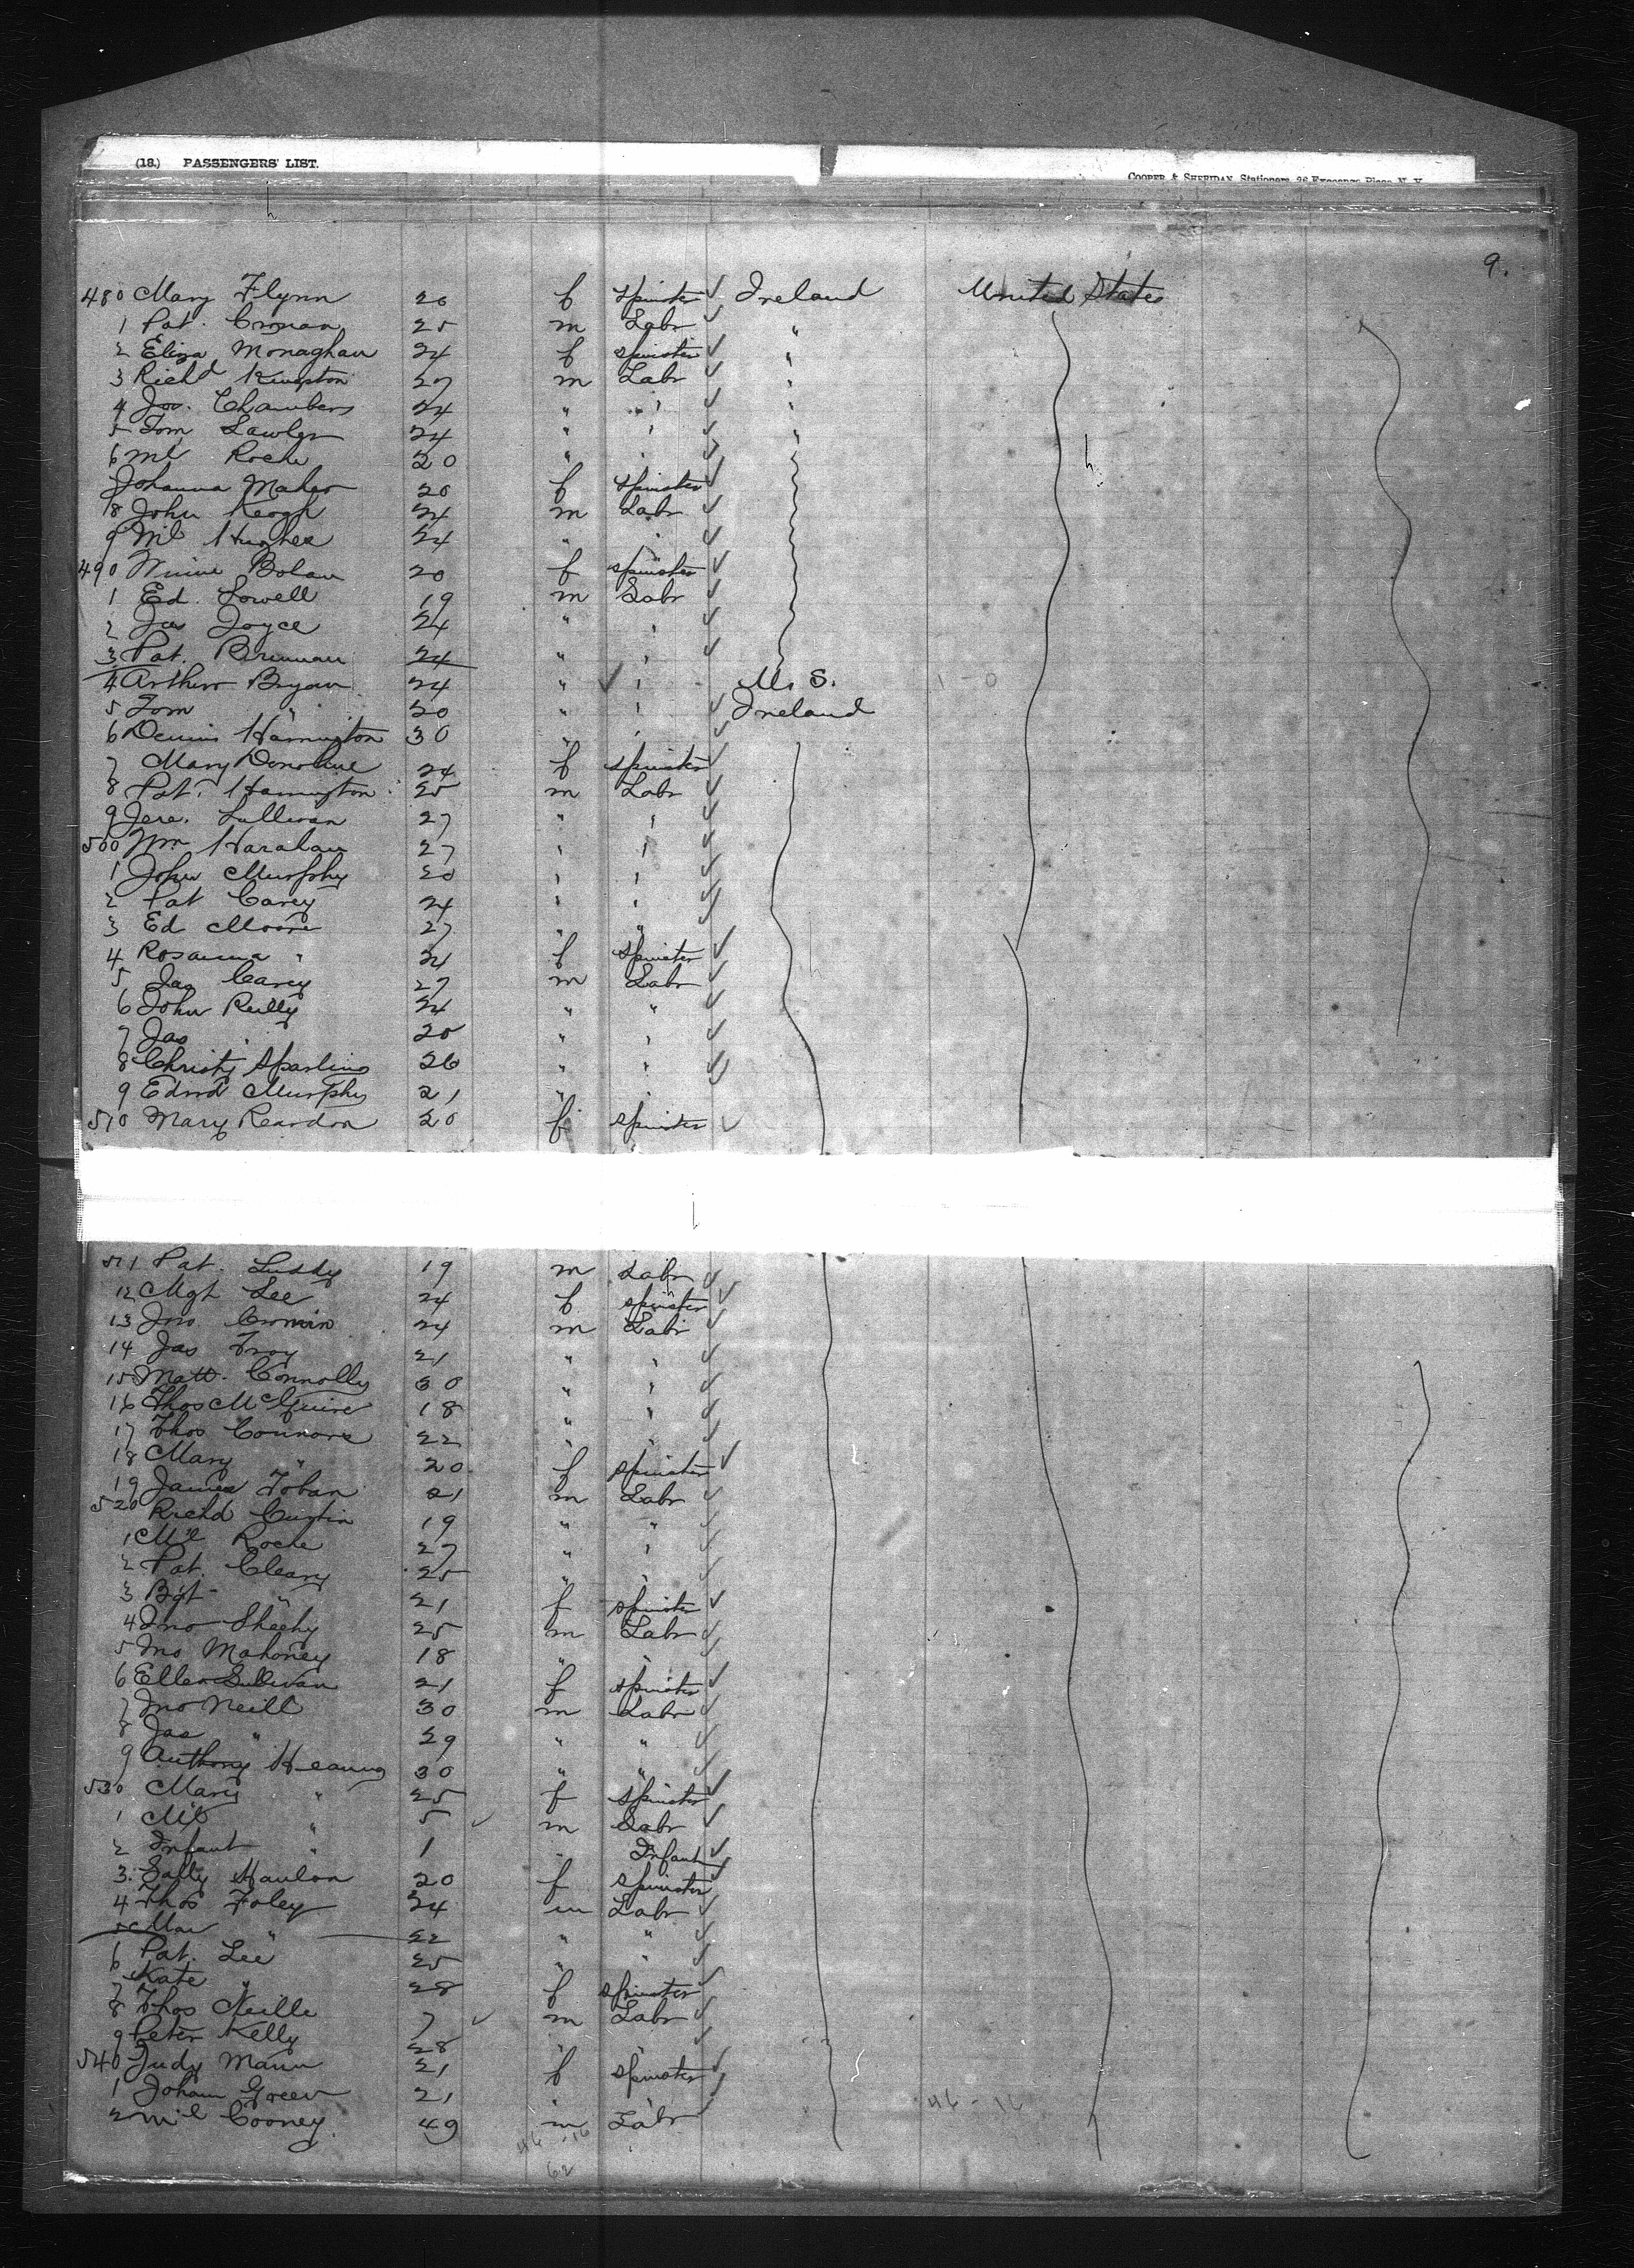 (18.) PASSENGERS' LIST.
COOPER & SHERIDAN, Stationers, 26 Exchange Place, N. Y.
9.
480 Mary Flynn 20 f Spinster ✓ Ireland United States
1 Pat. Cronan 25 m Labr ✓ "
2 Eliza Monaghan 24 f spinster ✓ "
3 Richd Kingston 27 m Labr ✓ "
4 Jos. Chambers 24 " " ✓ "
5 Tom Lawler 24 " " ✓ "
6 Ml Roche 20 " " ✓
Johanna Maher 20 f spinster ✓
8 John Keogh 24 m Labr ✓
9 Ml Hughes 24 " " ✓
490 Winnie Bolan 20 f spinster ✓
1 Ed. Lowell 19 m Labr ✓
2 Jas Joyce 24 " " ✓
3 Pat. Brennan 24 " " ✓
4 Arthur Bryan 24 " ✓ " U. S.
5 Tom " 20 " " ✓ Ireland
6 Dennis Harrington 30 " " ✓
7 Mary Donohue 24 f spinster ✓
8 Pat. Harrington 25 m Labr ✓
9 Jere. Sullivan 27 " " ✓
500 Wm Harahan 27 " " ✓
1 John Murphy 20 " " ✓
2 Pat Carey 24 " " ✓
3 Ed Moore 27 " " ✓
4 Rosanna " 21 f Spinster ✓
5 Jas Carey 27 m Labr ✓
6 John Reilly 24 " " ✓
7 Jas " 20 " " ✓
8 Christy Sparling 26 " " ✓
9 Edmd Murphy 21 " " ✓
510 Mary Reardon 20 f spinster ✓
511 Pat. Luddy 19 m Labr ✓
12 Mgt Lee 24 f spinster ✓
13 Jno. Cronin 24 m Labr ✓
14 Jas Troy 21 " " ✓
15 Matt. Connolly 30 " " ✓
16 Thos McGuire 18 " " ✓
17 Thos Connors 22 " " ✓
18 Mary " 20 f spinster ✓
19 James Toban 21 m Labr ✓
520 Richd Curtin 19 " " ✓
1 Ml Roche 27 " " ✓
2 Pat. Cleary 25 " " ✓
3 Bgt " 21 f spinster ✓
4 Jno Sheehy 25 m Labr ✓
5 Jno Mahoney 18 " " ✓
6 Ellen Sullivan 21 f spinster ✓
7 Jno Neill 30 m Labr ✓
8 Jas " 29 " " ✓
9 Anthony Heaning 30 " " ✓
530 Mary " 25 f spinster ✓
1 Ml " 5 ✓ m Labr ✓
2 Infant " 1 " Infant ✓
3 Sally Hanlon 20 f spinster ✓
4 Thos Foley 24 m Labr ✓
5 " 22 " " ✓
6 Pat. Lee 25 " " ✓
7 Kate " 28 f spinster ✓
8 Thos Neille 7 ✓ m Labr ✓
9 Peter Kelly 28 " " ✓
540 Judy Mann 21 f spinster ✓
1 Johann Green 21 " " ✓
2 Ml Cooney 49 m Labr
46 - 16
46 - 16
62